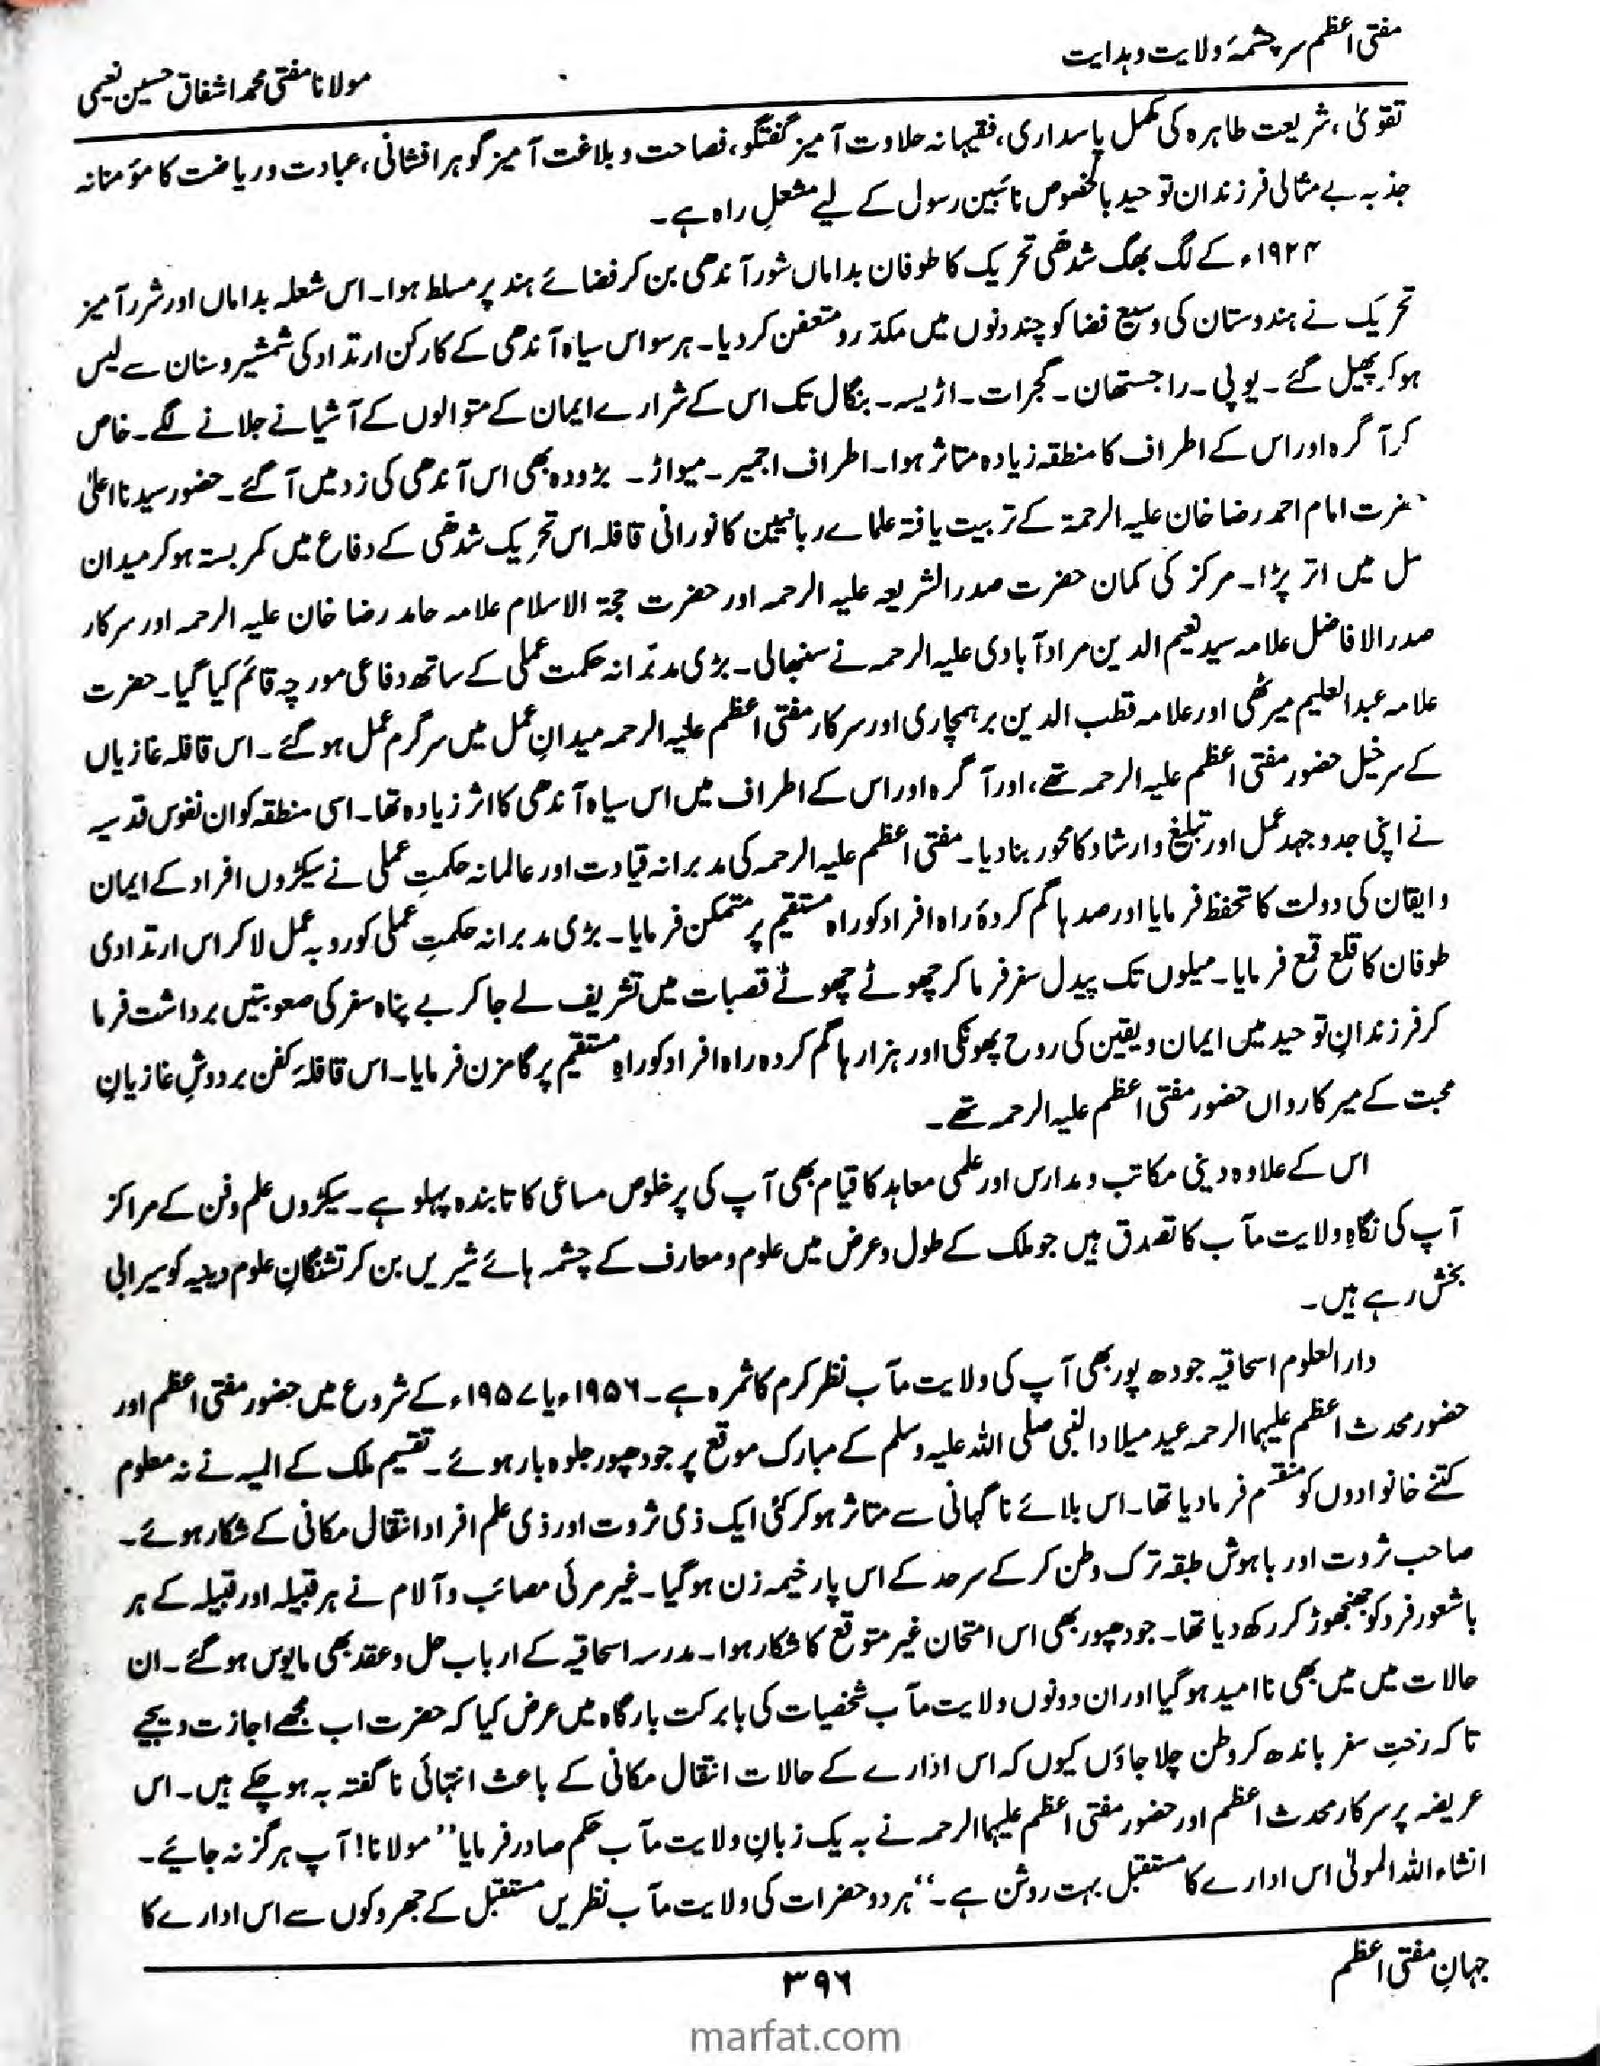 مفتی اعظم سرچشمۂ ولایت و ہدایت
مولانا مفتی محمد اشفاق حسین نعیمی
تقویٰ، شریعت طاہرہ کی مکمل پاسداری، فقیہانہ حلاوت آمیز گفتگو، فصاحت و بلاغت آمیز گوہر افشانی، عبادت و ریاضت کا مؤمنانہ
جذبہ بے مثالی فرزندان توحید بالخصوص نائبین رسول کے لیے مشعلِ راہ ہے۔
۱۹۲۴ء کے لگ بھگ شدھی تحریک کا طوفان بداماں شور آندھی بن کر فضائے ہند پر مسلط ہوا۔ اس شعلہ بداماں اور شرر آمیز
تحریک نے ہندوستان کی وسیع فضا کو چند دنوں میں مکدّر و متعفن کردیا۔ ہر سو اس سیاہ آندھی کے کارکن ارتداد کی شمشیر و سنان سے لیس
ہوکر پھیل گئے۔ یوپی۔ راجستھان۔ گجرات۔ اڑیسہ۔ بنگال تک اس کے شرارے ایمان کے متوالوں کے آشیانے جلانے لگے۔ خاص
کر آگرہ اور اس کے اطراف کا منطقہ زیادہ متاثر ہوا۔ اطراف اجمیر۔ میواڑ۔ بڑودہ بھی اس آندھی کی زد میں آگئے۔ حضور سیدنا اعلیٰ
حضرت امام احمد رضا خان علیہ الرحمۃ کے تربیت یافتہ علماے ربانیین کا نورانی قافلہ اس تحریک شدھی کے دفاع میں کمربستہ ہوکر میدان
مل میں اتر پڑا۔ مرکز کی کمان حضرت صدرالشریعہ علیہ الرحمہ اور حضرت حجۃ الاسلام علامہ حامد رضا خان علیہ الرحمہ اور سرکار
صدرالافاضل علامہ سید نعیم الدین مرادآبادی علیہ الرحمہ نے سنبھالی۔ بڑی مدبّرانہ حکمت عملی کے ساتھ دفاعی مورچہ قائم کیا گیا۔ حضرت
علامہ عبدالعلیم میرٹھی اور علامہ قطب الدین برہمچاری اور سرکار مفتی اعظم علیہ الرحمہ میدانِ عمل میں سرگرم عمل ہوگئے۔ اس قافلہ غازیاں
کے سرخیل حضور مفتی اعظم علیہ الرحمہ تھے، اور آگرہ اور اس کے اطراف میں اس سیاہ آندھی کا اثر زیادہ تھا۔ اسی منطقہ کو ان نفوس قدسیہ
نے اپنی جدوجہد عمل اور تبلیغ و ارشاد کا محور بنادیا۔ مفتی اعظم علیہ الرحمہ کی مدبرانہ قیادت اور عالمانہ حکمتِ عملی نے سیکڑوں افراد کے ایمان
و ایقان کی دولت کا تحفظ فرمایا اور صدہا گم کردۂ راہ افراد کو راہ مستقیم پر متمکن فرمایا۔ بڑی مدبرانہ حکمتِ عملی کو روبہ عمل لاکر اس ارتدادی
طوفان کا قلع قمع فرمایا۔ میلوں تک پیدل سفر فرماکر چھوٹے چھوٹے قصبات میں تشریف لے جاکر بے پناہ سفر کی صعوبتیں برداشت فرما
کر فرزندانِ توحید میں ایمان و یقین کی روح پھونکی اور ہزارہا گم کردہ راہ افراد کو راہِ مستقیم پر گامزن فرمایا۔ اس قافلۂ کفن بردوشِ غازیانِ
محبت کے میر کارواں حضور مفتی اعظم علیہ الرحمہ تھے۔
اس کے علاوہ دینی مکاتب و مدارس اور علمی معاہد کا قیام بھی آپ کی پرخلوص مساعی کا تابندہ پہلو ہے۔ سیکڑوں علم و فن کے مراکز
آپ کی نگاہِ ولایت مآب کا تصدق ہیں جو ملک کے طول و عرض میں علوم و معارف کے چشمہ ہائے شیریں بن کر تشنگانِ علوم دینیہ کو سیرابی
بخش رہے ہیں۔
دارالعلوم اسحاقیہ جودھ پور بھی آپ کی ولایت مآب نظر کرم کا ثمرہ ہے۔ ۱۹۵۶ء یا ۱۹۵۷ء کے شروع میں حضور مفتی اعظم اور
حضور محدث اعظم علیہما الرحمہ عید میلاد النبی صلی اللہ علیہ وسلم کے مبارک موقع پر جودھپور جلوہ بار ہوئے۔ تقسیم ملک کے المیہ نے نہ معلوم
کتنے خانوادوں کو منقسم فرمادیا تھا۔ اس بلائے ناگہانی سے متاثر ہوکر کئی ایک ذی ثروت اور ذی علم افراد انتقال مکانی کے شکار ہوئے۔
صاحب ثروت اور باہوش طبقہ ترک وطن کرکے سرحد کے اس پار خیمہ زن ہوگیا۔ غیر مرئی مصائب و آلام نے ہر قبیلہ اور قبیلہ کے ہر
باشعور فرد کو جھنجھوڑ کر رکھ دیا تھا۔ جودھپور بھی اس امتحان غیر متوقع کا شکار ہوا۔ مدرسہ اسحاقیہ کے ارباب حل و عقد بھی مایوس ہوگئے۔ ان
حالات میں میں بھی ناامید ہوگیا اور ان دونوں ولایت مآب شخصیات کی بابرکت بارگاہ میں عرض کیا کہ حضرت اب مجھے اجازت دیجیے
تاکہ رختِ سفر باندھ کر وطن چلا جاؤں کیوں کہ اس ادارے کے حالات انتقال مکانی کے باعث انتہائی ناگفتہ بہ ہوچکے ہیں۔ اس
عریضہ پر سرکار محدث اعظم اور حضور مفتی اعظم علیہما الرحمہ نے بہ یک زبانِ ولایت مآب حکم صادر فرمایا ”مولانا! آپ ہرگز نہ جائیے۔
انشاء اللہ المولیٰ اس ادارے کا مستقبل بہت روشن ہے۔“ ہر دو حضرات کی ولایت مآب نظریں مستقبل کے جھروکوں سے اس ادارے کا
جہانِ مفتی اعظم
۳۹۶
marfat.com